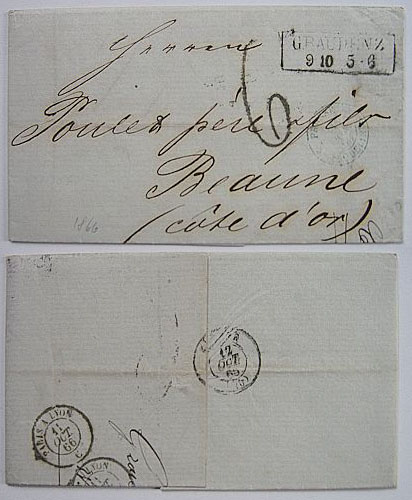 Herren
GRAUDENZ
9 10 5-6
6
Poulet père & fils
Beaune
(côte d'or)
1866
12
OCT
PARIS A LYON
11
OCT
66
LYON